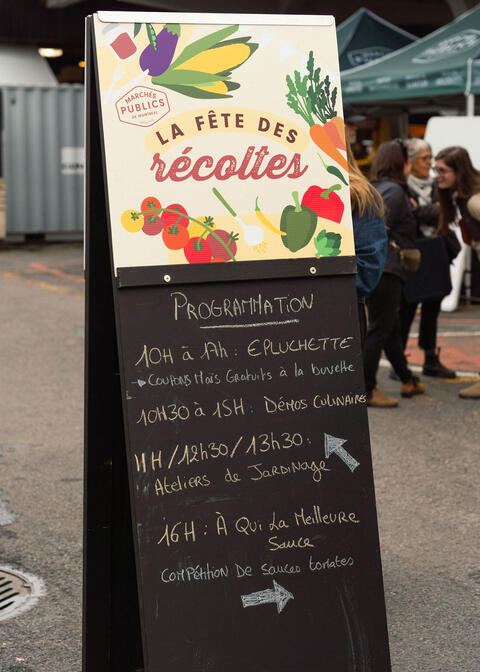 MARCHÉS
PUBLICS
DE MONTRÉAL
LA FÊTE DES
récoltes
PROGRAMMATION
10H à 17h : EPLUCHETTE
→ COUPONS MAÏS GRATUITS à la buvette
10H30 à 15H : DÉMOS CULINAIRES
11H/12h30/13h30 :
Ateliers de JARDINAGE
16H : À QUI LA MEILLEURE
SAUCE
COMPÉTITION DE SAUCES tomates